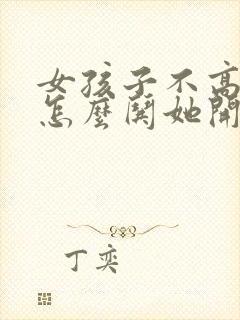 女孩子不高
怎麼鬨她開
丁奕